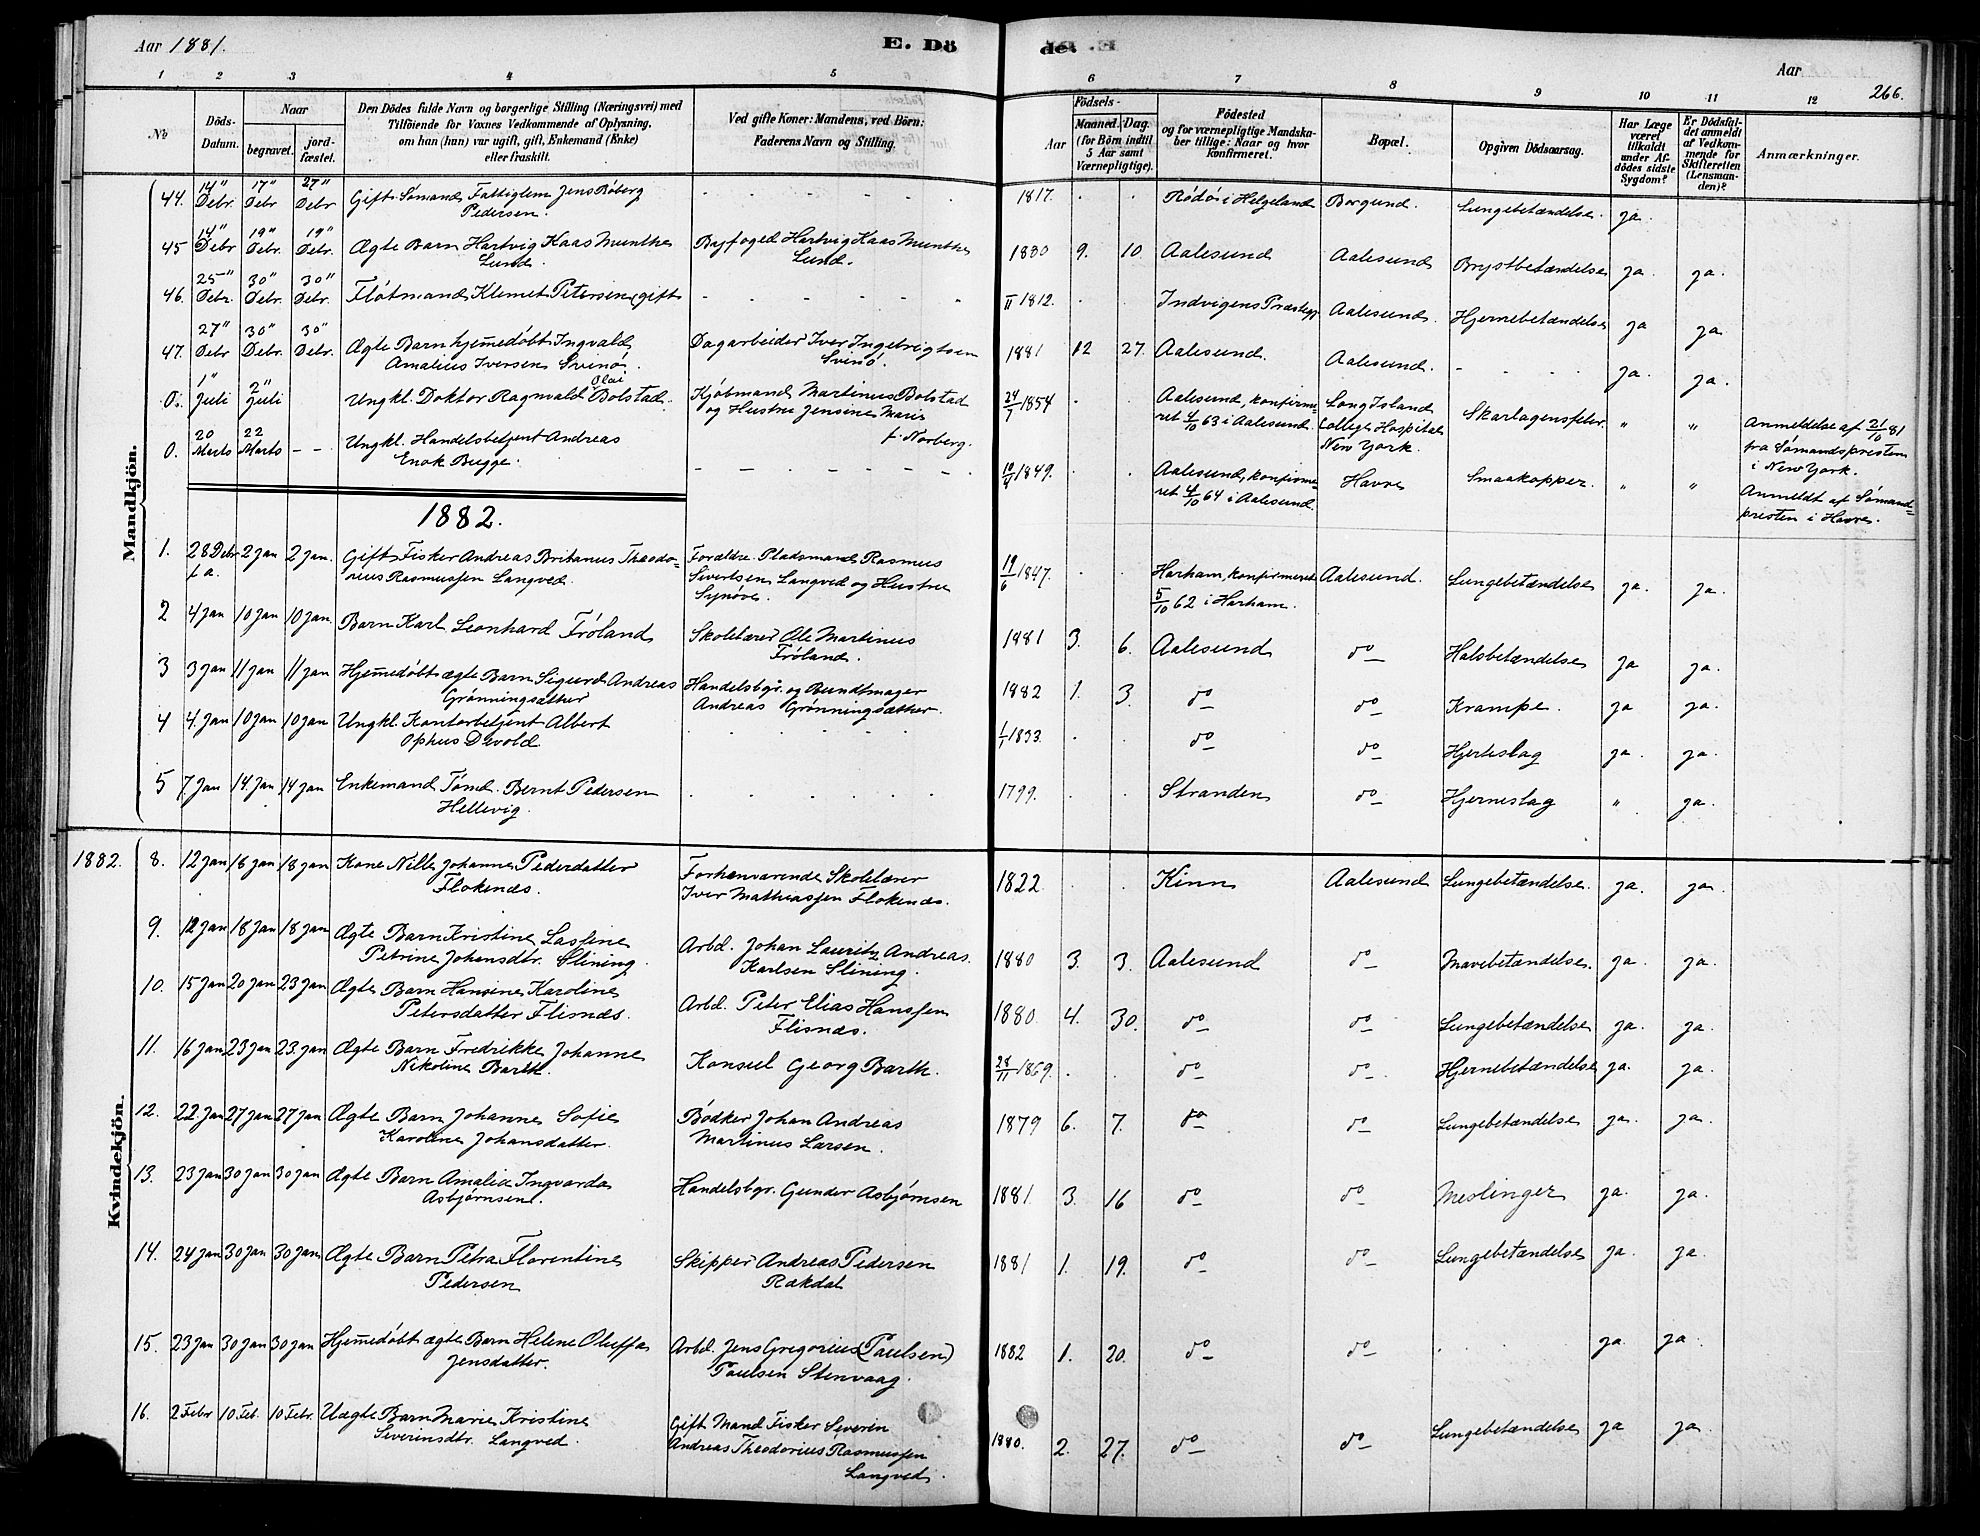 Aar 1881.
E. Dö
de. E.
Aar
266.
1 2 3 4 5 6 7 8 9 10 11 12
No
Döds-Datum.
Naar
begravet.
jord-fæstet.
Den Dödes fulde Navn og borgerlige Stilling (Næringsvei) med
Tilföiende for Voxnes Vedkommende af Oplysning,
om han (hun) var ugift, gift, Enkemand (Enke)
eller fraskilt.
Ved gifte Koner: Mandens, ved Börn:
Faderens Navn og Stilling.
Födsels-
Aar
Maaned. Dag.
(for Börn indtil
5 Aar samt
Værnepligtige).
Födested
og for værnepligtige Mandska-
ber tillige: Naar og hvor
konfirmeret.
Bopæl.
Opgiven Dödsaarsag.
Har Læge
været
tilkaldt
under Af-
dödes sidste
Sygdom?
Er Dödsfal-
det anmeldt
af Vedkom-
mende for
Skifteretten
(Lensman-
den)?
Anmærkninger.
Mandkjön.
44. 14" Debr. 17" Debr 27" Debr Gift Sømand Fattiglem Jens Røberg Pedersen. 1817. Rödö i Helgeland Borgund. Lungebetændelse. ja.
45 14" Debr 19" Debr. 19" Debr. Ægte Barn Hartvig Kaas Munthe Lund. Byfoged Hartvig Kaas Munthe Lund. 1880 9. 10 Aalesund Aalesund Brystbetændelse ja. ja.
46. 25" Debr. 30" Debr. 30" Debr. Fløtmand Klemet Petersen (gift 1812. Indvigens Præstegj Aalesund. Hjernebetændelse ja ja
47. 27" Debr 30" Debr. 30" Debr. Ægte Barn hjemedøbt Ingvald Amalius Iversen Svinø. Dagarbeider Iver Ingebrigtsen Svinø. 1881 12 27. Aalesund. Aalesund. ja. ja.
0. 1" Juli 2" Juli Ungkl. Doktor Ragnvald Olai Bolstad. Kjøbmand Martinus Bolstad og Hustru Jensine Marie f. Norberg. 24/7 1854 Aalesund, konfirme-ret 4/10 63 i Aalesund. Long Island College Hospital New York. Skarlagensfeber. " " Anmeldelse af 21/10 81 fra Sømandspresten i New York.
0. 20 Marts 22 Marts Ungkl. Handelsbetjent Andreas Enok Bugge. 10/4 1849. Aalesund, konfirme-ret 4/10 64 i Aalesund. Havre Smaakopper. " " Anmeldt af Sømand-presten i Havre.
1882.
1. 28 Debr f.a. 2 Jan 2 Jan. Gift Fisker Andreas Britanus Theodo-rius Rasmussen Langved. Forældre. Pladsmand Rasmus Sivertsen Langved og Hustru Synøve. 19/6 1847. Harham, konfirmeret 5/10 62 i Harham. Aalesund. Lungebetændelse ja. ja.
2 4 Jan 10 Jan 10 Jan. Barn Karl Leonhard Frøland Skolelærer Ole Martinus Frøland. 1881 3. 6. Aalesund do Halsbetændelse ja ja.
3 3 Jan 11 Jan 11 Jan Hjemedøbt ægte Barn Sigurd Andreas Grønningsæther Handelsbgr. og Bundtmager Andreas Grønningsæther. 1882 1. 3. do do Krampe. ja ja.
4 4. Jan 10 Jan 10 Jan Ungkl. Kontorbetjent Albert Ophus Devold 1/1 1833. do do Hjerteslag ja. ja.
5 7. Jan 14. Jan 14 Jan Enkemand Tømd. Bernt Pedersen Hellevig. 1799. Stranden do Hjerneslag " ja.
Kvindekjön.
1882. 8. 12 Jan 18 Jan 18 Jan Kone Nille Johanne Pedersdatter Flokenæs. Forhenværende Skolelærer Iver Mathiassen Flokenæs. 1822 Kinn Aalesund Lungebetændelse. ja. ja.
9. 12 Jan 18 Jan 18 Jan Ægte Barn Kristine Lassine Petrine Johansdtr. Slining. Arbd. Johan Lauritz Andreas. Karlsen Slining. 1880 3. 3. Aalesund do Mavebetændelse. ja. ja.
10. 15 Jan 20 Jan 23 Jan Ægte Barn Hansine Karoline Petersdatter Flisnæs. Arbd. Peter Elias Hanssen Flisnæs. 1880. 4. 30. do do Lungebetændelse ja. ja.
11. 16 Jan 23 Jan 23. Jan Ægte Barn Fredrikke Johanne Nikoline Barth. Konsul Georg Barth. 28/11 1869. do do Hjernebetændelse ja. ja.
12. 22. Jan 27 Jan 27 Jan Ægte Barn Johanne Sofie Karoline Johansdatter. Bødker Johan Andreas Martinus Larsen. 1879 6. 7. do do Lungebetændelse ja. ja.
13. 23 Jan 30 Jan 30 Jan Ægte Barn Amalia Ingvarda Asbjørnsen. Handelsbgr. Gunder Asbjørnsen 1881. 3. 16 do do Meslinger ja. ja.
14. 24 Jan 30 Jan 30 Jan Ægte Barn Petra Florentine Pedersen Skipper Andreas Pedersen Rakdal 1881 1. 19. do do Lungebetændelse ja. ja.
15. 23 Jan 30 Jan 30 Jan Hjemedøbt ægte Barn Helene Oluffa Jensdatter. Arbd. Jens Gregorius (Paulsen) Paulsen Stenvaag. 1882 1. 20. do do ja ja.
16. 2 Febr 10 Feb. 10 Febr. Uægte Barn Marie Kristine Severinsdtr. Langved. Gift Mand Fisker Severin Andreas Theodorius Rasmussen Langved. 1880. 2. 27. do do Lungebetændelse ja ja.